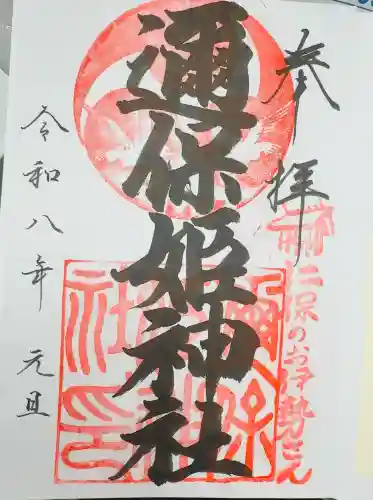 奉拝
二保のお伊勢さん
邇保姫神社
令和八年 元旦